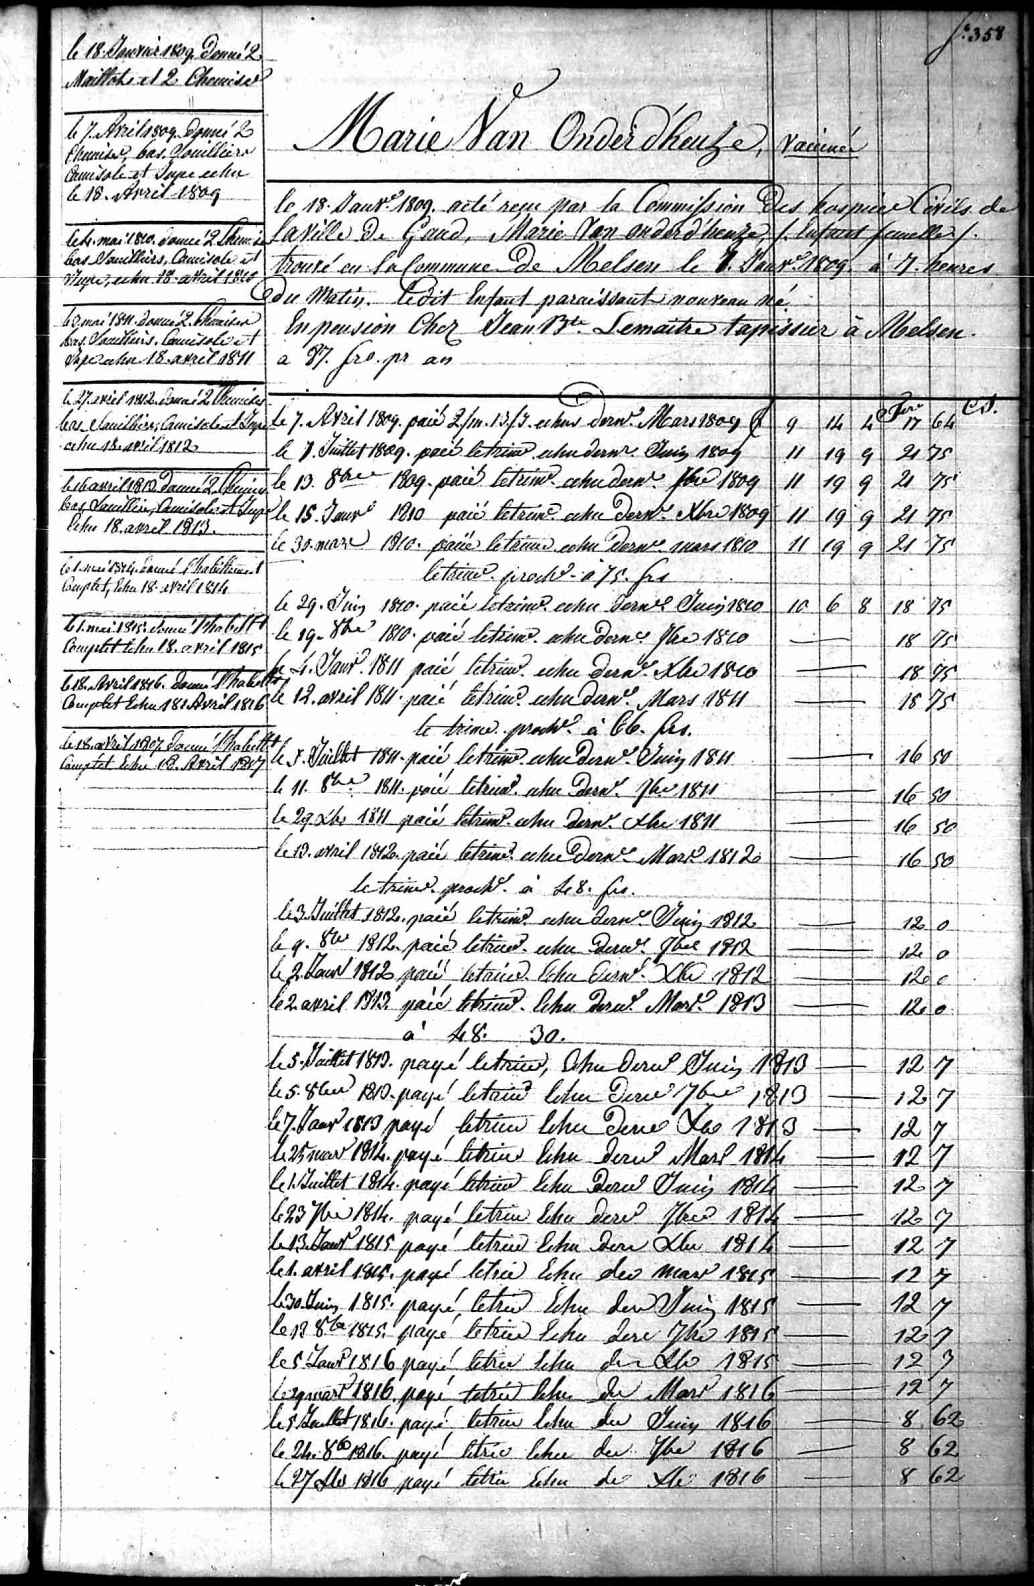 f.° 358
le 18. Janvié 1809. Donné 2
Maillots et 2 Chemises
le 7. Avril 1809. Donné 2
Chemises, bas, Souilliers
Camisole et Jupe echu
le 18. Avril 1809
le 4. mai 1810. donné 2 Chemises
bas Souilliers, Camisole et
Jupe, echu 18. avril 1810
le 3 mai 1811. donné 2. Chemises
bas. Souilliers. Camisole et
Jupe echu 18. avril 1811
le 27. avril 1812. donné 2 Chemises
bas, Souilliers, Camisole et Jupe
echu 18. avril 1812
le 16 avril 1813 donné 2 Chemises
bas Souilliers, Camisole et Jupe
echu 18. avril 1813.
le 1. mai 1814. donné l'habillement
Complet, Echu 18. avril 1814
le 1. mai 1815. donné l'habillt
Complet Echu 18. avril 1815
le 18. Avril 1816. donné l'habillt
Complet Echu 18. Avril 1816
le 18. avril 1817 donné l'habillt
Complet Echu 18. Avril 1817
Marie Van Onderd'heuze, vacciné
le 18. Janvr. 1809. acté reçu par la Commission des hospices Civils de
la ville de Gand, Marie Van onderd'heuze, /. Enfant femelle /.
trouvé en la Commune de Melsen le 7. Janvr. 1809. à 7. heures
du Matin. ledit Enfant paraissant nouveau né
En pension Chez Jean Bte. Lemaitre tapissier à Melsen.
a 87. frs. pr an
le 7. Avril 1809. paié 2/m. 13/J. echus dernr. Mars 1809 9 14 4 frs 17 64 Cts.
le 7. Juillet 1809. paié le trimr. echu dernr. Juin 1809 11 19 9 21 75
le 13. 8bre 1809. paié le trimr. echu dernr. 7bre 1809 11 19 9 21 75
le 15. Janvr 1810 paié le trimr. echu dernr. Xbre 1809 11 19 9 21 75
le 30. mars 1810. paié le trimr. echu dernr. mars 1810 11 19 9 21 75
le trimr. prochr. à 75. frs
le 29. Juin 1810. paié le trimr. echu dernr. Juin 1810 10 6 8 18 75
le 19. 8bre 1810. paié le trimr. echu dernr 7bre 1810 — 18 75
le 4. Janvr. 1811 paié le trimr. echu dernr. Xbre 1810 — 18 75
le 12. avril 1811. paié le trimr. echu dernr. Mars 1811 — 18 75
le trimr. prochr. à 66. frs.
le 5. Juillet 1811. paié le trimr. echu dernr. Juin 1811 — 16 50
le 11. 8bre 1811. paié le trimr. echu dernr. 7bre 1811 — 16 50
le 29 Xbre 1811 paié le trimr. echu dernr. Xbre 1811 — 16 50
le 13. avril 1812. paié le trimr. echu dernr. Mars 1812 — 16 50
le trimr. prochr. à 48. frs.
le 3. Juillet 1812. paié le trimr. echu dernr. Juin 1812 — 12 0
le 9. 8bre 1812. paié le trimr. echu dernr. 7bre 1812 — 12 0
le 2. Janvr 1812 paié le trimr. Echu dernr. Xbre 1812 — 12 0
le 2 avril 1813. paié le trimr. Echu dernr. Mars 1813 — 12 0
à 48. 30.
le 5. Juillet 1813. payé le trimr, Echu dernr Juin 1813 — 12 7
le 5. 8bre 1813. payé le trimr Echu dernr 7bre 1813 — 12 7
le 7. Janvr 1813 payé le trimr Echu dernr Xbre 1813 — 12 7
le 25 mars 1814. payé le trimr Echu dernr Mars 1814 — 12 7
le 1. Juillet 1814. payé le trimr Echu dernr Juin 1814 — 12 7
le 23 7bre 1814. payé le trimr Echu dernr 7bre 1814 — 12 7
le 13. Janvr 1815 payé le trimr Echu dernr Xbre 1814 — 12 7
le 1. avril 1815. payé le trimr Echu der mars 1815 — 12 7
le 30. Juin 1815. payé le trimr Echu der Juin 1815 — 12 7
le 13 8bre 1815. payé le trimr Echu der 7bre 1815 — 12 7
le 5 Janvr 1816 payé le trimr Echu der Xbre 1815 — 12 7
le 29 mars 1816. payé le trimr Echu der Mars 1816 — 12 7
le 5 Juillet 1816. payé le trimr Echu der Juin 1816 8 62
le 24. 8bre 1816. payé le trimr Echu der 7bre 1816 — 8 62
le 27 Xbre 1816 payé le trimr Echu de Xbre 1816 — 8 62